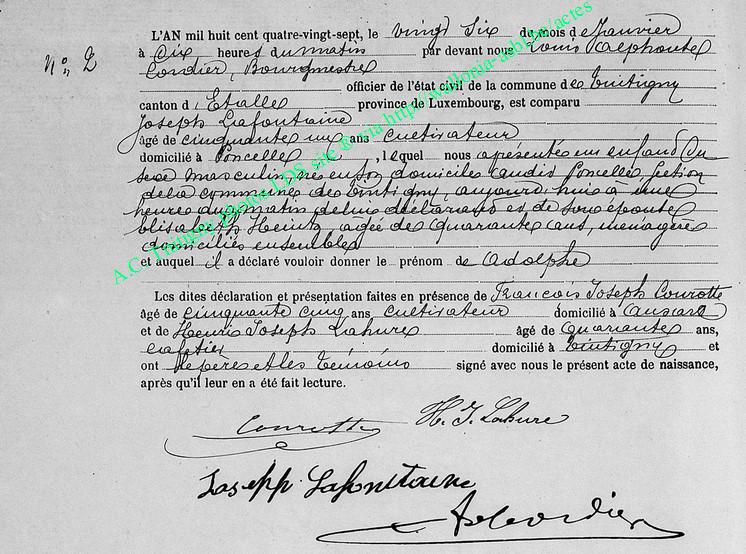 L'AN mil huit cent quatre-vingt-sept, le vingt six du mois de Janvier
N° 2
à dix heures du matin par devant nous Louis Alphonse
Cordier, Bourgmestre
officier de l'état civil de la commune de Tintigny
canton d'Etalle province de Luxembourg, est comparu
Joseph Lafontaine
âgé de cinquante un ans cultivateur
domicilié à Poncelle, lequel nous a présenté un enfant du
sexe masculin, né en son domicile audit Poncelle, section
de la commune de Tintigny, aujourd'hui à une
heure du matin de lui déclarant et de son épouse
Elisabeth Heintz, âgée de quarante ans, ménagère
domiciliés ensemble
et auquel il a déclaré vouloir donner le prénom de Adolphe
Les dites déclaration et présentation faites en présence de François Joseph Courotte
âgé de cinquante cinq ans, cultivateur domicilié à Ansart
et de Henri Joseph Lahure âgé de quarante ans,
cafetier domicilié à Tintigny et
ont le père et les témoins signé avec nous le présent acte de naissance,
après qu'il leur en a été fait lecture.
Courotte H. J. Lahure
Joseph Lafontaine
A. Cordier